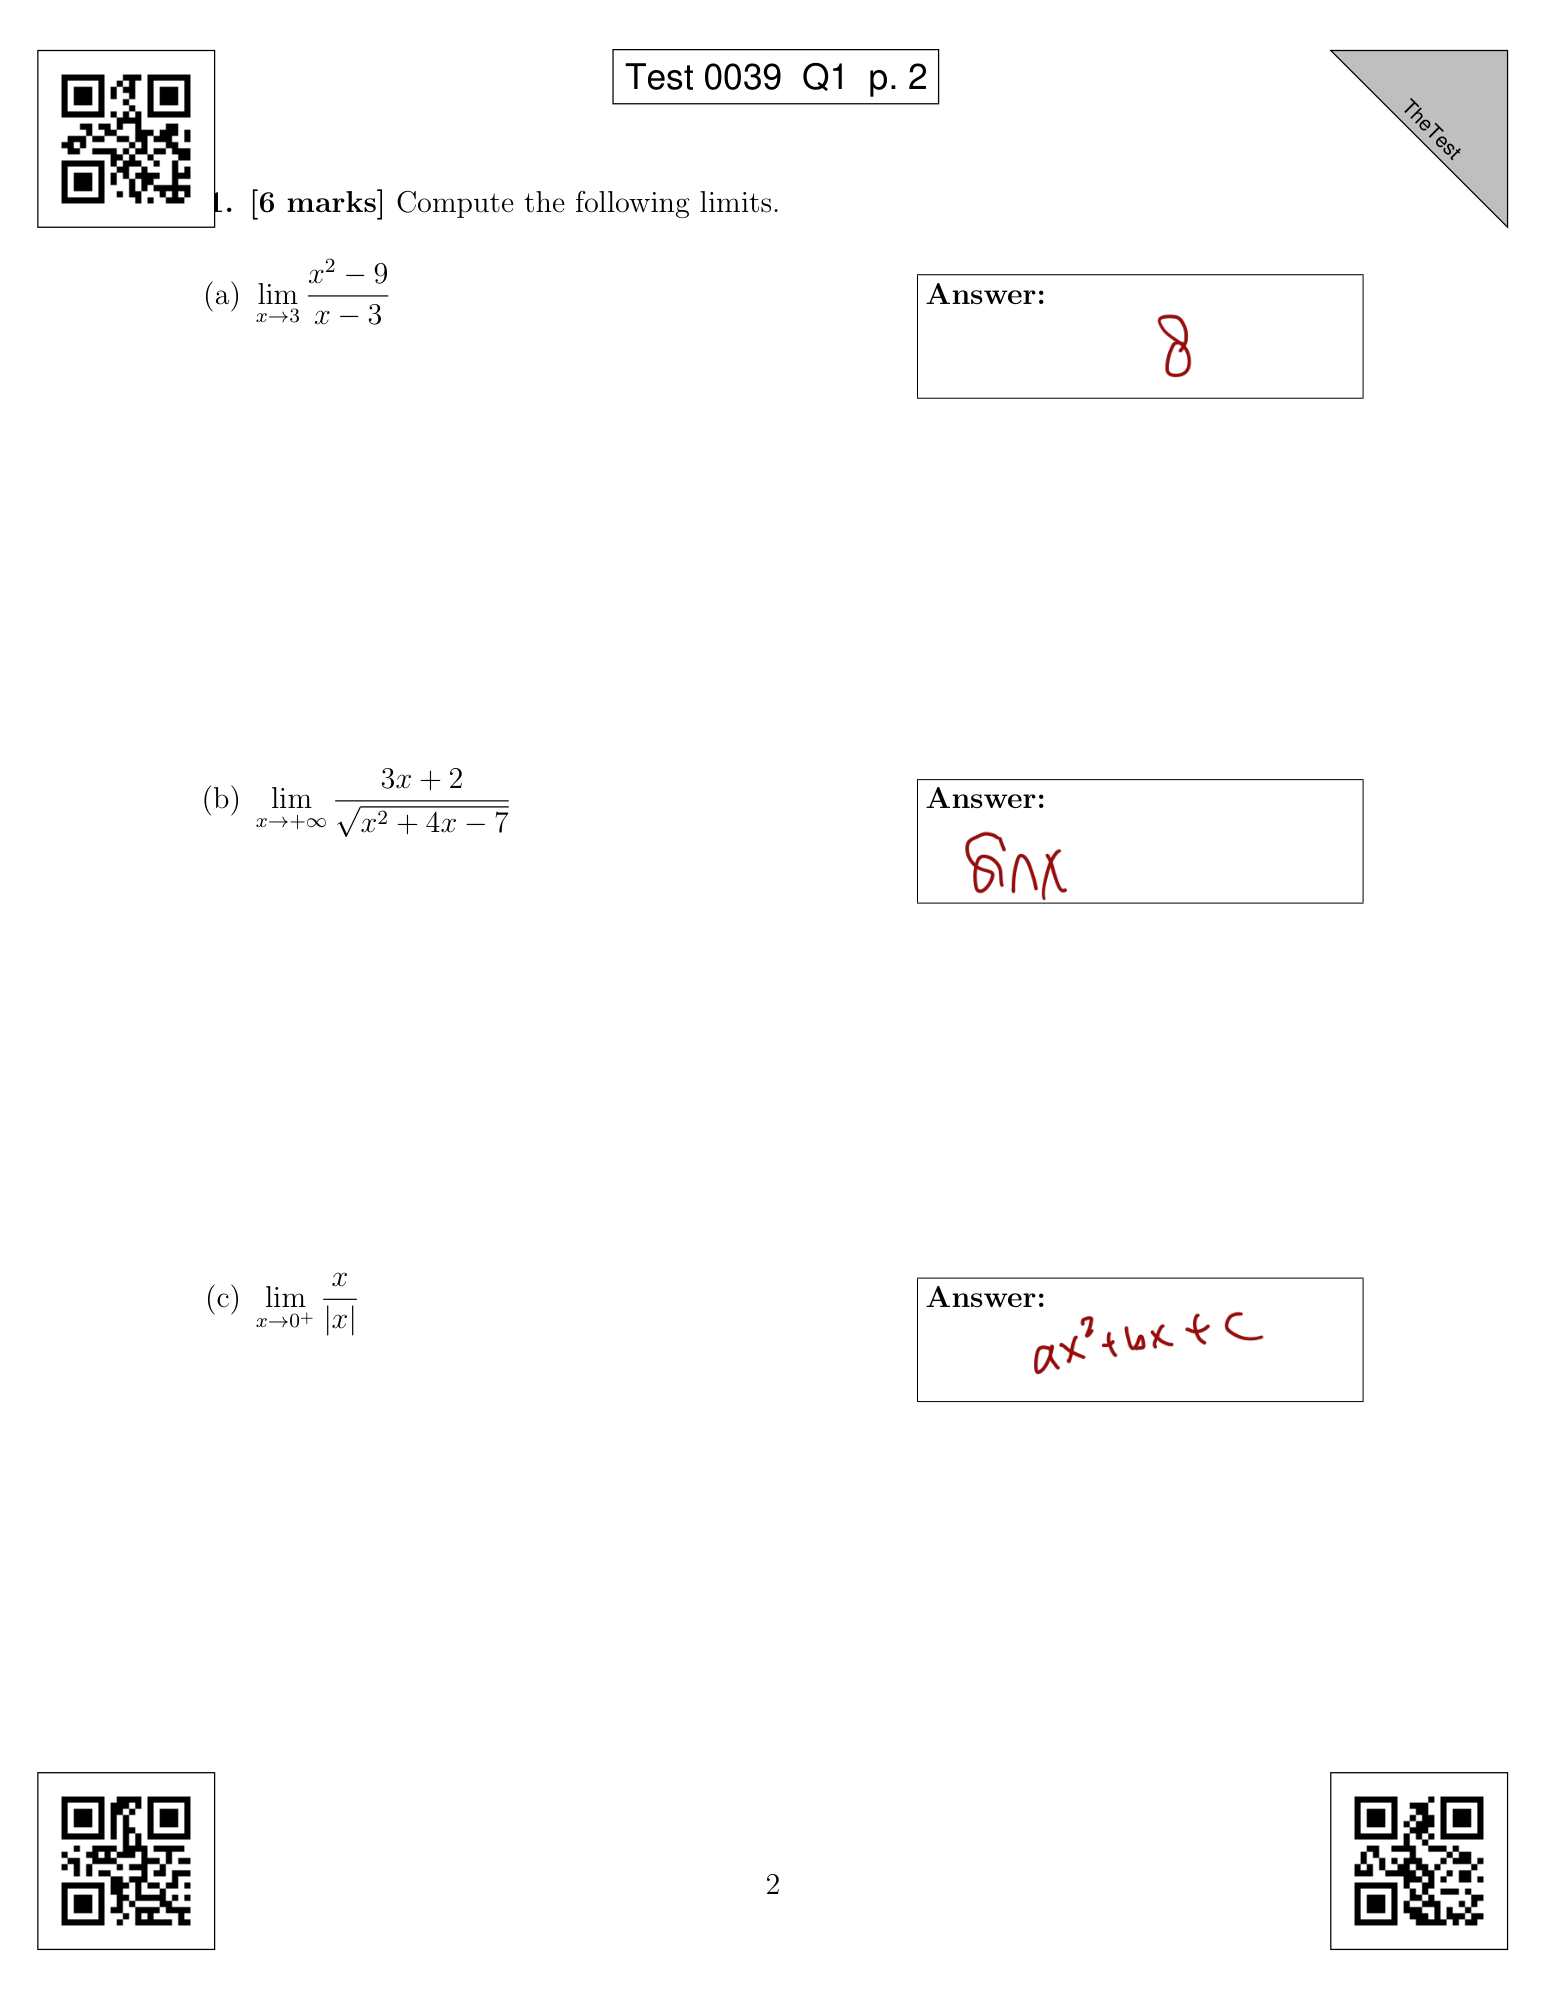 Test 0039 Q1 p. 2
TheTest
1. [6 marks] Compute the following limits.
(a) lim x→3 (x² − 9)/(x − 3)
Answer:
8
(b) lim x→+∞ (3x + 2)/√(x² + 4x − 7)
Answer:
sinx
(c) lim x→0⁺ x/|x|
Answer:
ax² + bx + c
2